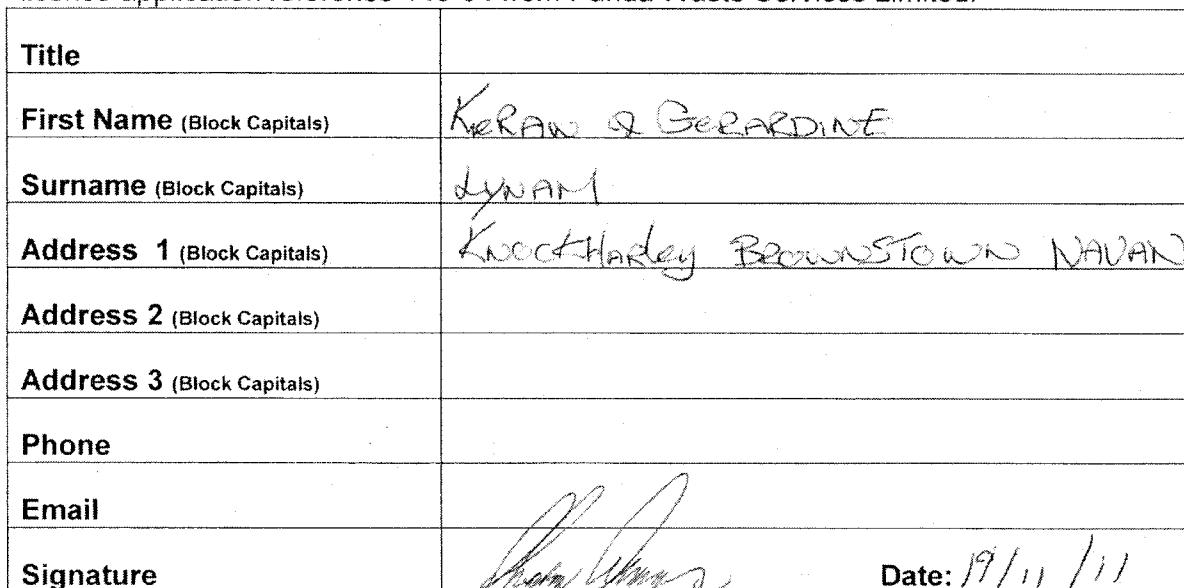 Title
First Name (Block Capitals) KERAN & GERARDINE
Surname (Block Capitals) LYNAM
Address 1 (Block Capitals) KNOCKHARLEY BROWNSTOWN NAVAN
Address 2 (Block Capitals)
Address 3 (Block Capitals)
Phone
Email
Signature Date: 19/11/11